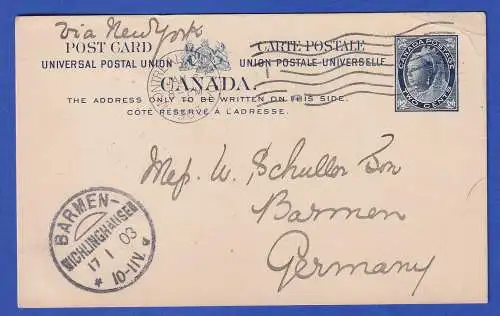 via New York
POST CARD CARTE POSTALE
UNIVERSAL POSTAL UNION UNION POSTALE UNIVERSELLE
CANADA.
THE ADDRESS ONLY TO BE WRITTEN ON THIS SIDE.
CÔTÉ RÉSERVÉ À L'ADRESSE.
CANADA POSTAGE
TWO CENTS
MONTREAL
Mess. W. Schuller Son
Barmen
Germany
BARMEN-
WICHLINGHAUSEN
17 1 03
* 10-11V. *